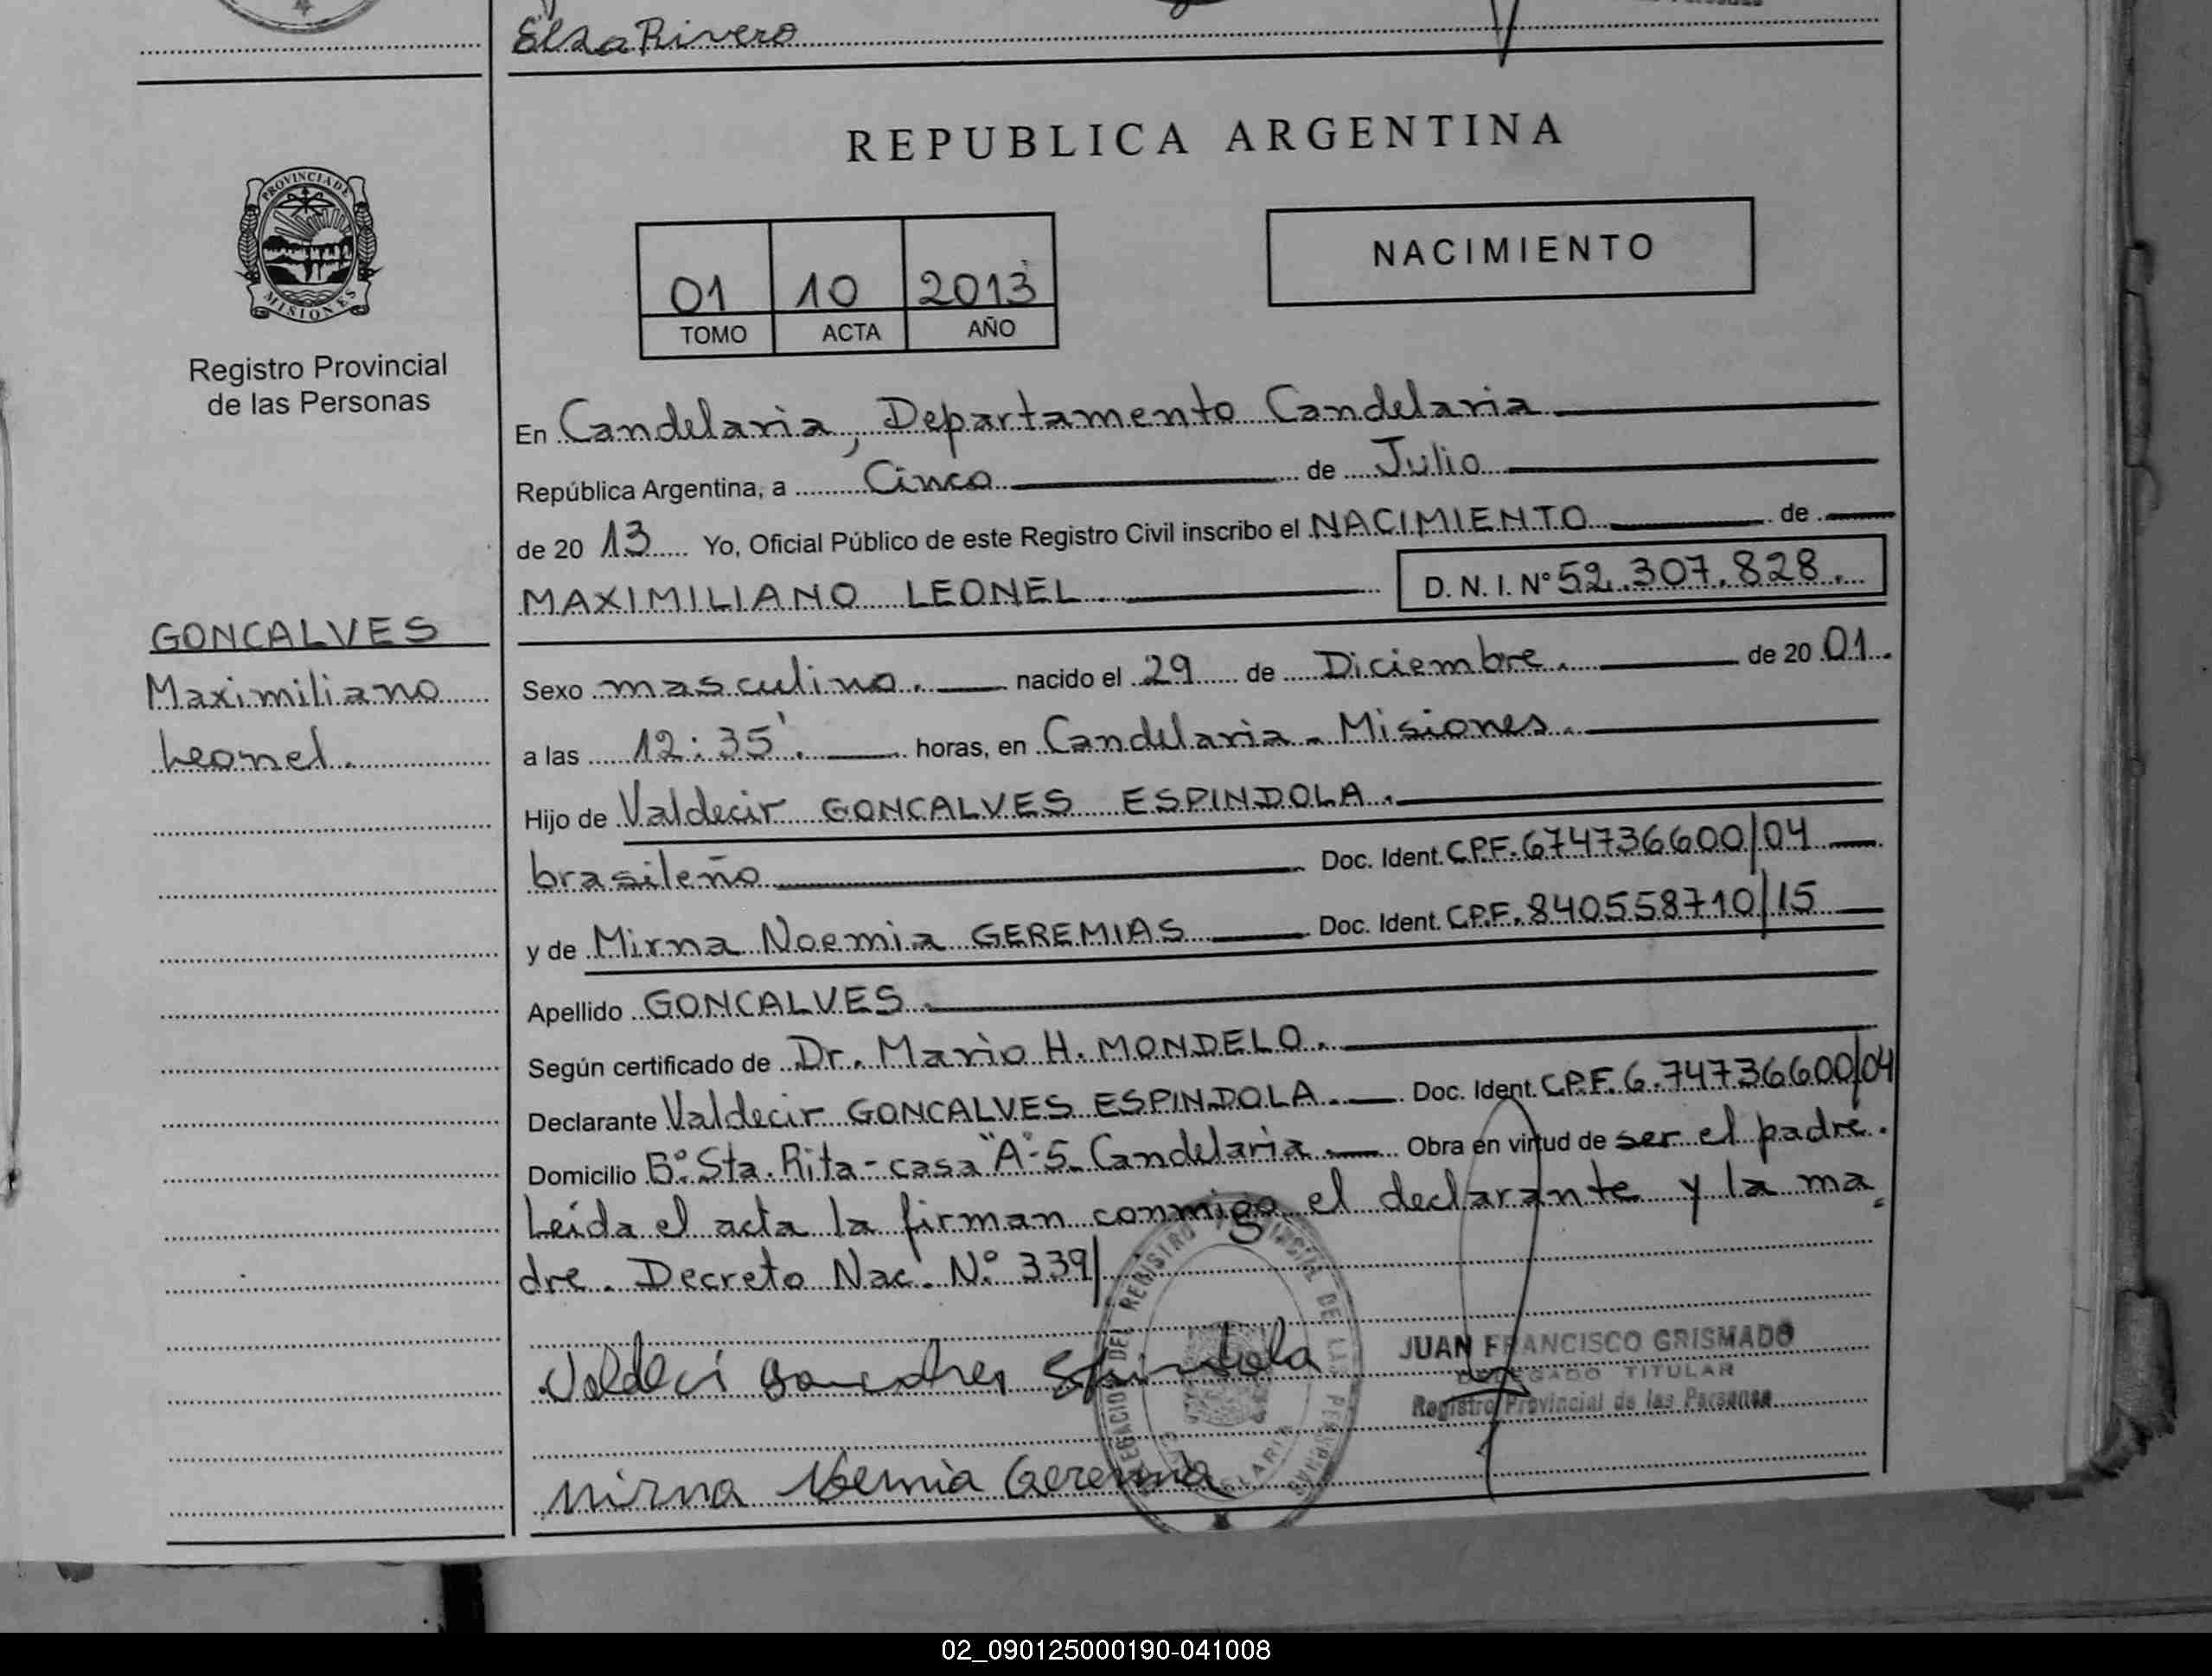 Elsa Rivero
REPUBLICA ARGENTINA
PROVINCIA DE
MISIONES
Registro Provincial
de las Personas
01 10 2013
TOMO ACTA AÑO
NACIMIENTO
En Candelaria, Departamento Candelaria
República Argentina, a Cinco de Julio
de 20 13 Yo, Oficial Público de este Registro Civil inscribo el NACIMIENTO de
MAXIMILIANO LEONEL. D. N. I. N° 52.307.828.
GONCALVES
Maximiliano
Leonel.
Sexo masculino. nacido el 29 de Diciembre. de 20 01.
a las 12:35'. horas, en Candelaria - Misiones.
Hijo de Valdecir GONCALVES ESPINDOLA.
brasileño Doc. Ident. CPF. 674736600/04
y de Mirna Noemia GEREMIAS Doc. Ident. CPF. 840558710/15
Apellido GONCALVES.
Según certificado de Dr. Mario H. MONDELO.
Declarante Valdecir GONCALVES ESPINDOLA. Doc. Ident. CPF. 6.74736600/04
Domicilio B° Sta. Rita - casa "A"-5- Candelaria. Obra en virtud de ser el padre.
Leída el acta la firman conmigo el declarante y la ma=
dre. Decreto Nac. N° 339/
Valdeci Goncalves Espindola
JUAN FRANCISCO GRISMADO
DELEGADO TITULAR
Registro Provincial de las Personas
Mirna Noemia Geremia
02_090125000190-041008